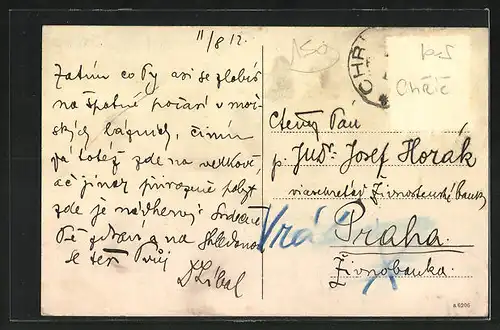 11/8 12.
Zatím co Ty asi se zlobíš
na špatné počasí v moř-
ských lázních, činím
já totéž zde na venkově,
ač jinak přirozeně pobyt
zde je nádherný. Srdečně
Tě zdraví a na shledanou
se těší Tvůj
150
CHR
Ctěný Pán
p. JUDr. Josef Horák
Živnostenské banky
Praha.
Živnobanka.
A 6206